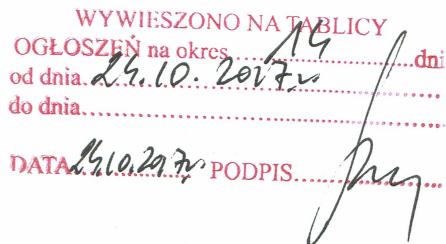 WYWIESZONO NA TABLICY
OGŁOSZEŃ na okres 14 dni
od dnia 24.10.2017r.
do dnia
DATA 24.10.2017r. PODPIS